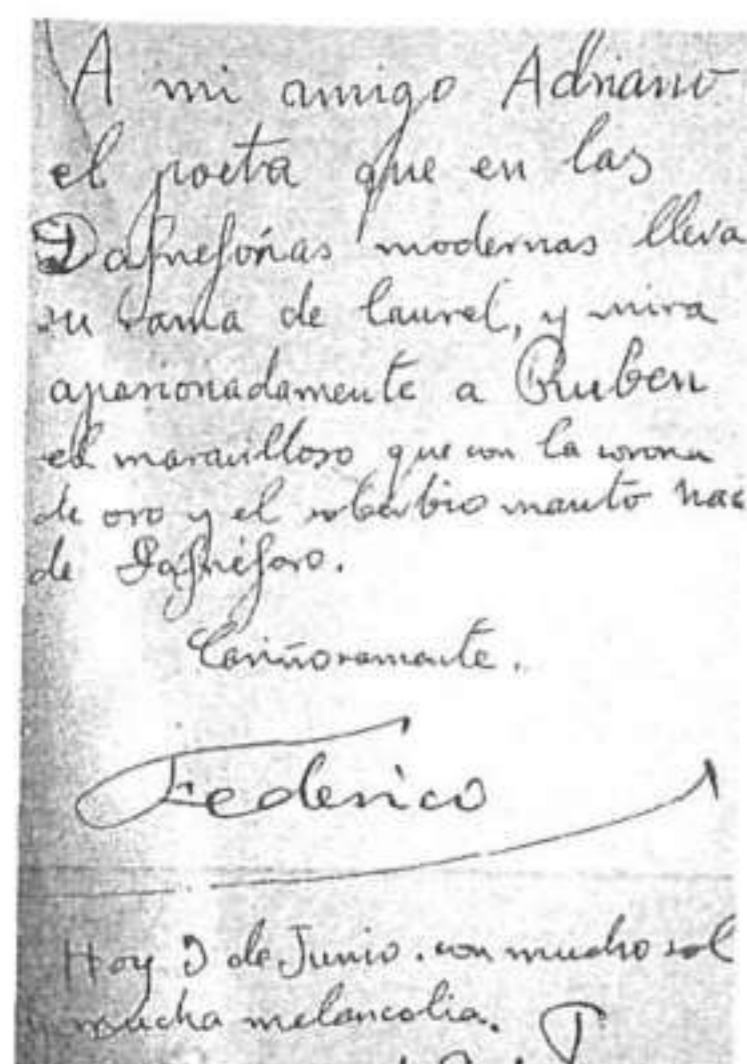 A mi amigo Adriano
el poeta que en las
Dafneforias modernas lleva
su rama de laurel, y mira
apasionadamente a Ruben
el maravilloso que con la corona
de oro y el soberbio manto hac
de Dafnéforo.
Cariñosamente.
Federico
Hoy 9 de Junio. con mucho sol
mucha melancolia.